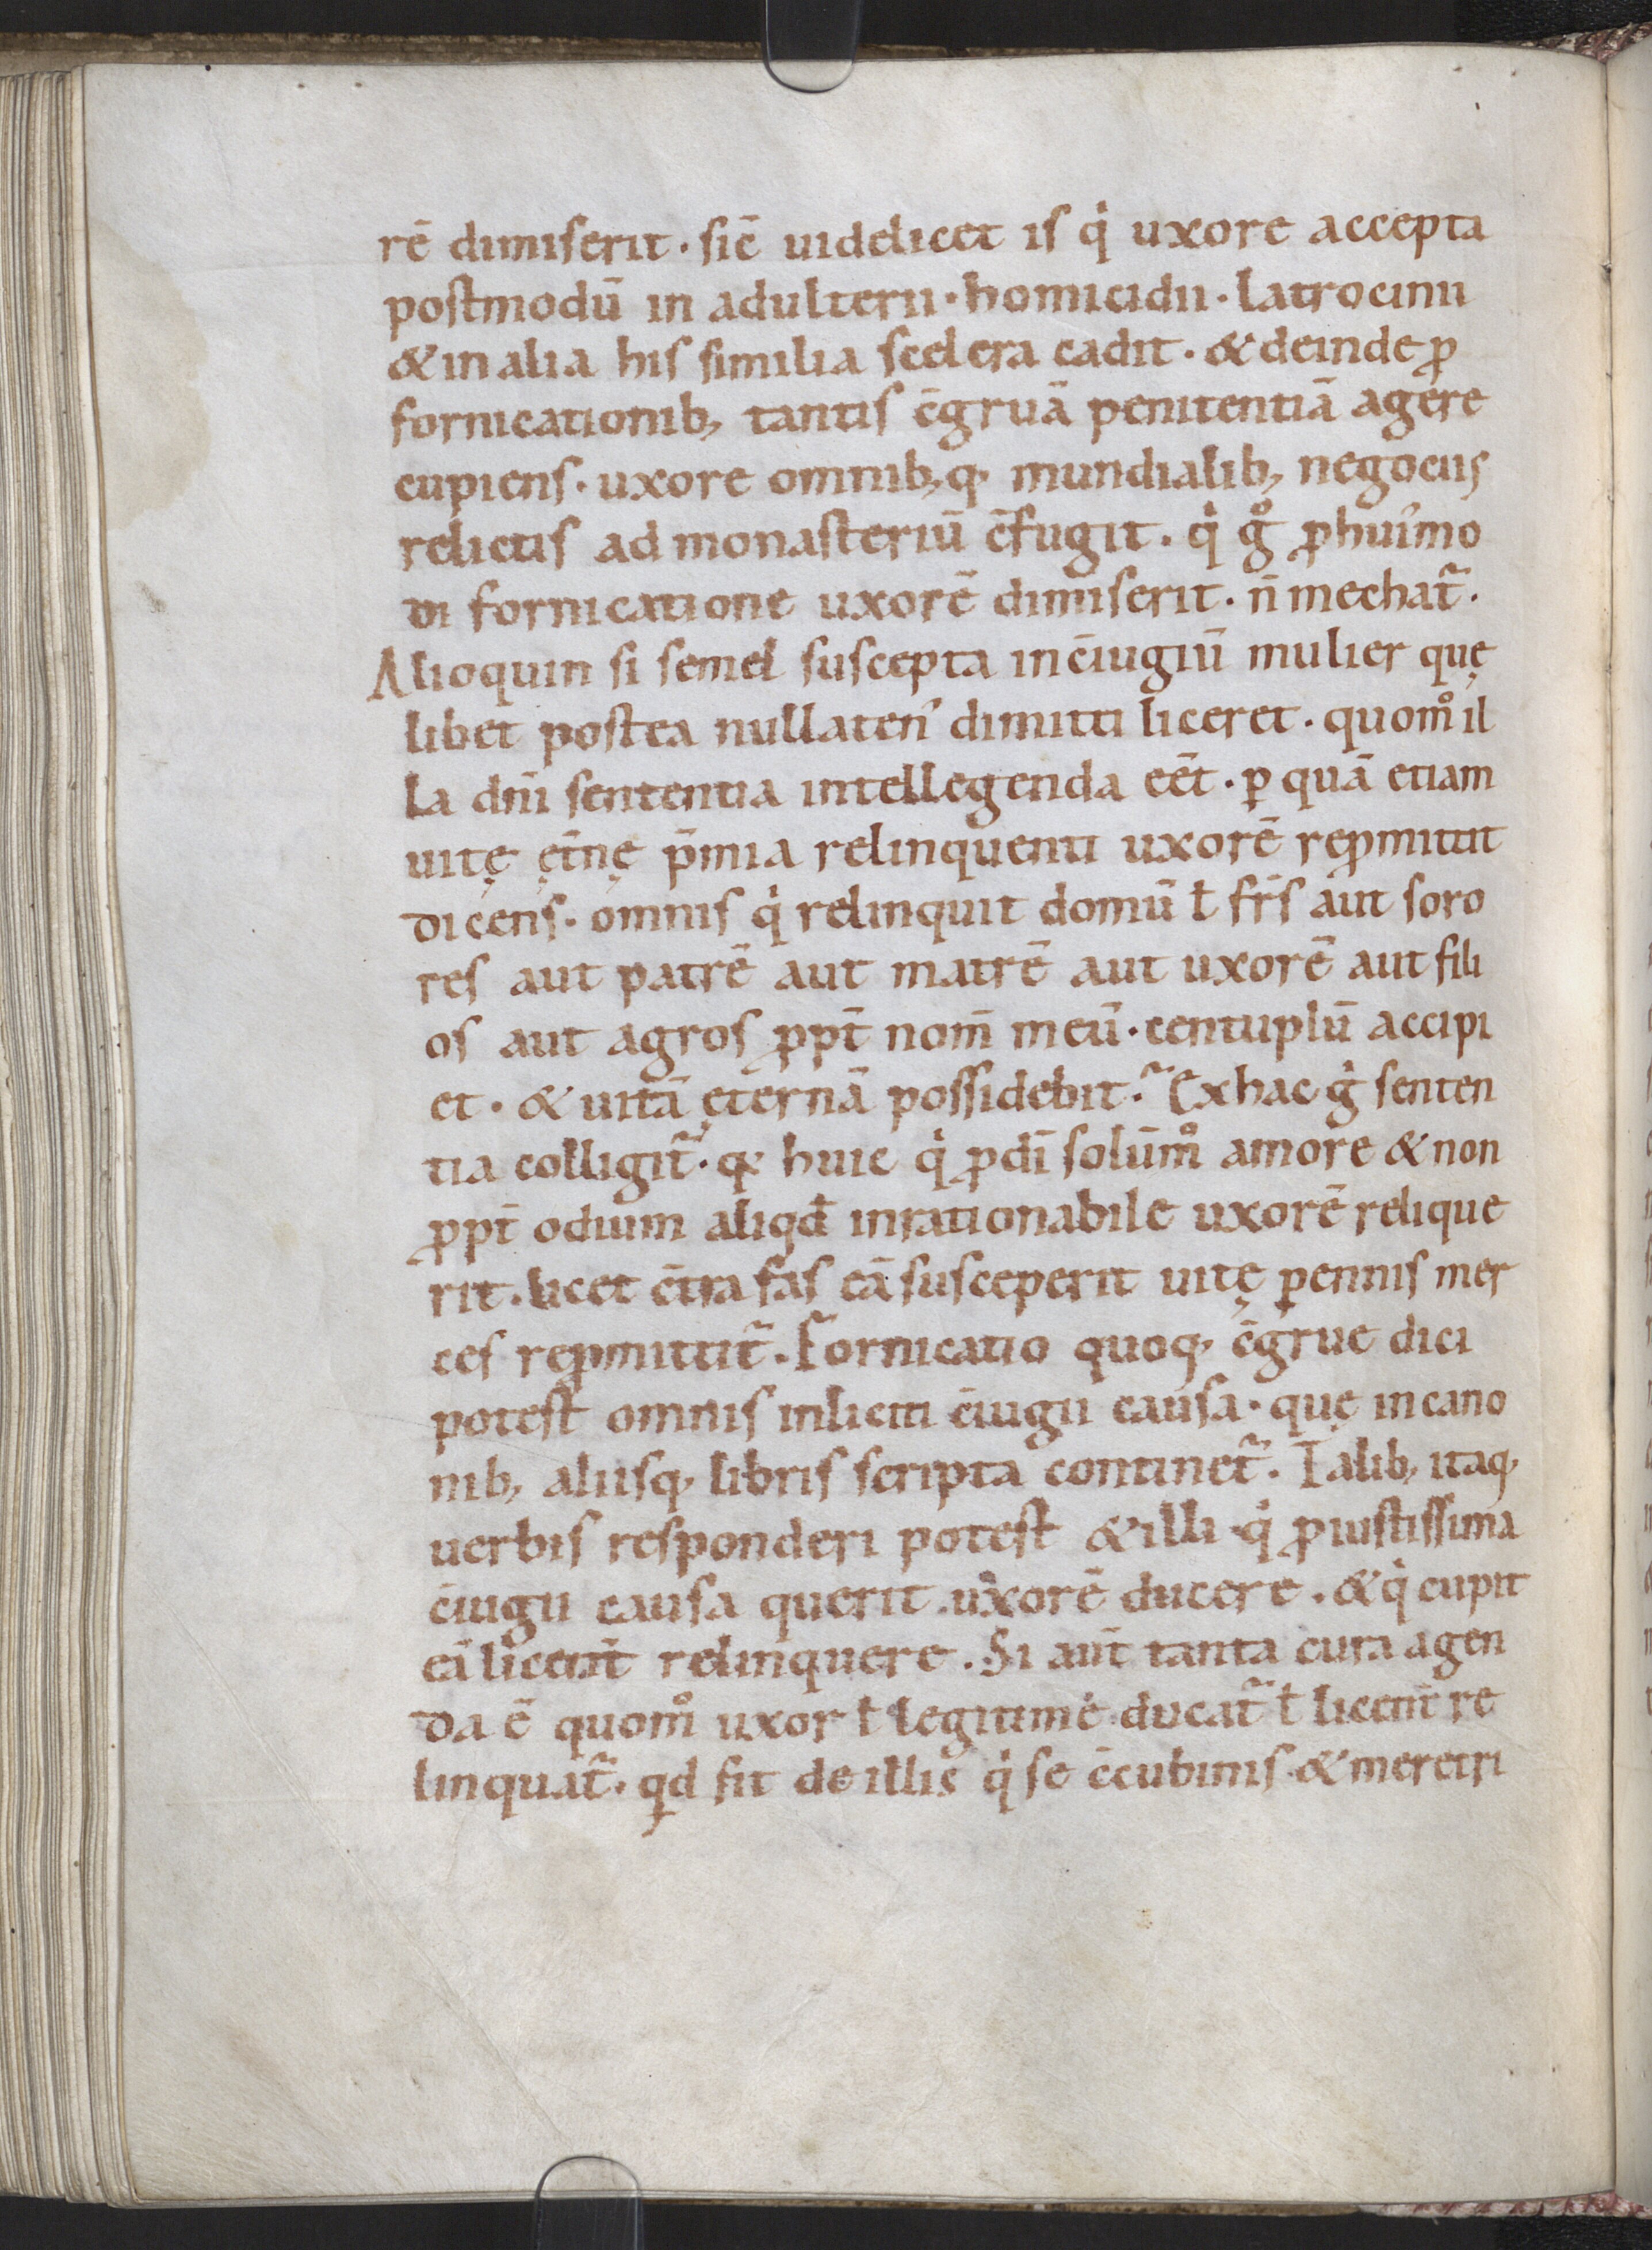 rē dimiserit · sic̄ uidelicet is q̇ uxore accepta
postmodū in adulterii · homicidii · latrocinii
& in alia his similia scelera cadit · & deinde ꝓ
fornicationib; tantis c̄gruā penitentiā agere
cupiens · uxore omnib;q· mundialib; negociis
relictis ad monasteriū c̄fugit · q̇ g̊ ꝓ hui'mo
di fornicatione uxorē dimiserit · n̄ mechat̃ ·
Alioquin si semel suscepta in c̄iugiū mulier quę
libet postea nullaten' dimitti liceret · quom̊ il
la dn̄i sententia intellegenda eēt · ꝑ quā etiam
uitę ęt̄nę p̄mia relinquenti uxorē repromittit
dicens · omnis q̇ relinquit domū ł fr̄s aut soro
res aut patrē aut matrē aut uxorē aut fili
os aut agros ꝓpt̄ nom̄ meū · centuplū accipi
et · & uitā ęternā possidebit ·̃ Ex hac ġ senten
tia colligit̃ · q· huic q̇ ꝓ dī solūm̊ amore & non
ꝓpt̄ odium aliqđ inrationabile uxorē relique
rit · licet c̄tra fas eā susceperit uitę ꝑennis mer
ces repromittit̃ . Fornicatio quoq; c̄grue dici
potest omnis inliciti c̄iugii causa · quę in cano
nib; aliisq; libris scripta continet̃ . Talib; itaq;
uerbis responderi potest & illi · q̇ ꝓ iustissima
c̄iugii causa querit uxorē ducere . & q̇ cupit
eā licent̄ relinquere . Si aut̄ tanta cura agen
da ē quom̊ uxor ł legitime ducat̃ ł licent̄ re
linquat̃ · qđ fit de illis q̇ se c̄cubinis & meretri